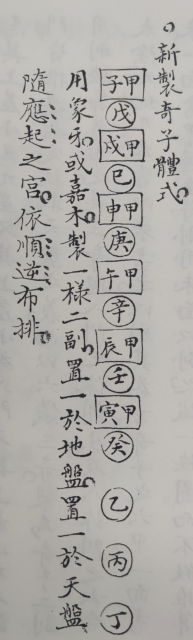 。新製奇子體式
甲子 戊 甲戌 己 甲申 庚 甲午 辛 甲辰 壬 甲寅 癸 乙 丙 丁
用象牙或嘉木製一樣二副置一於地盤置一於天盤
隨應起之宮依順逆布排